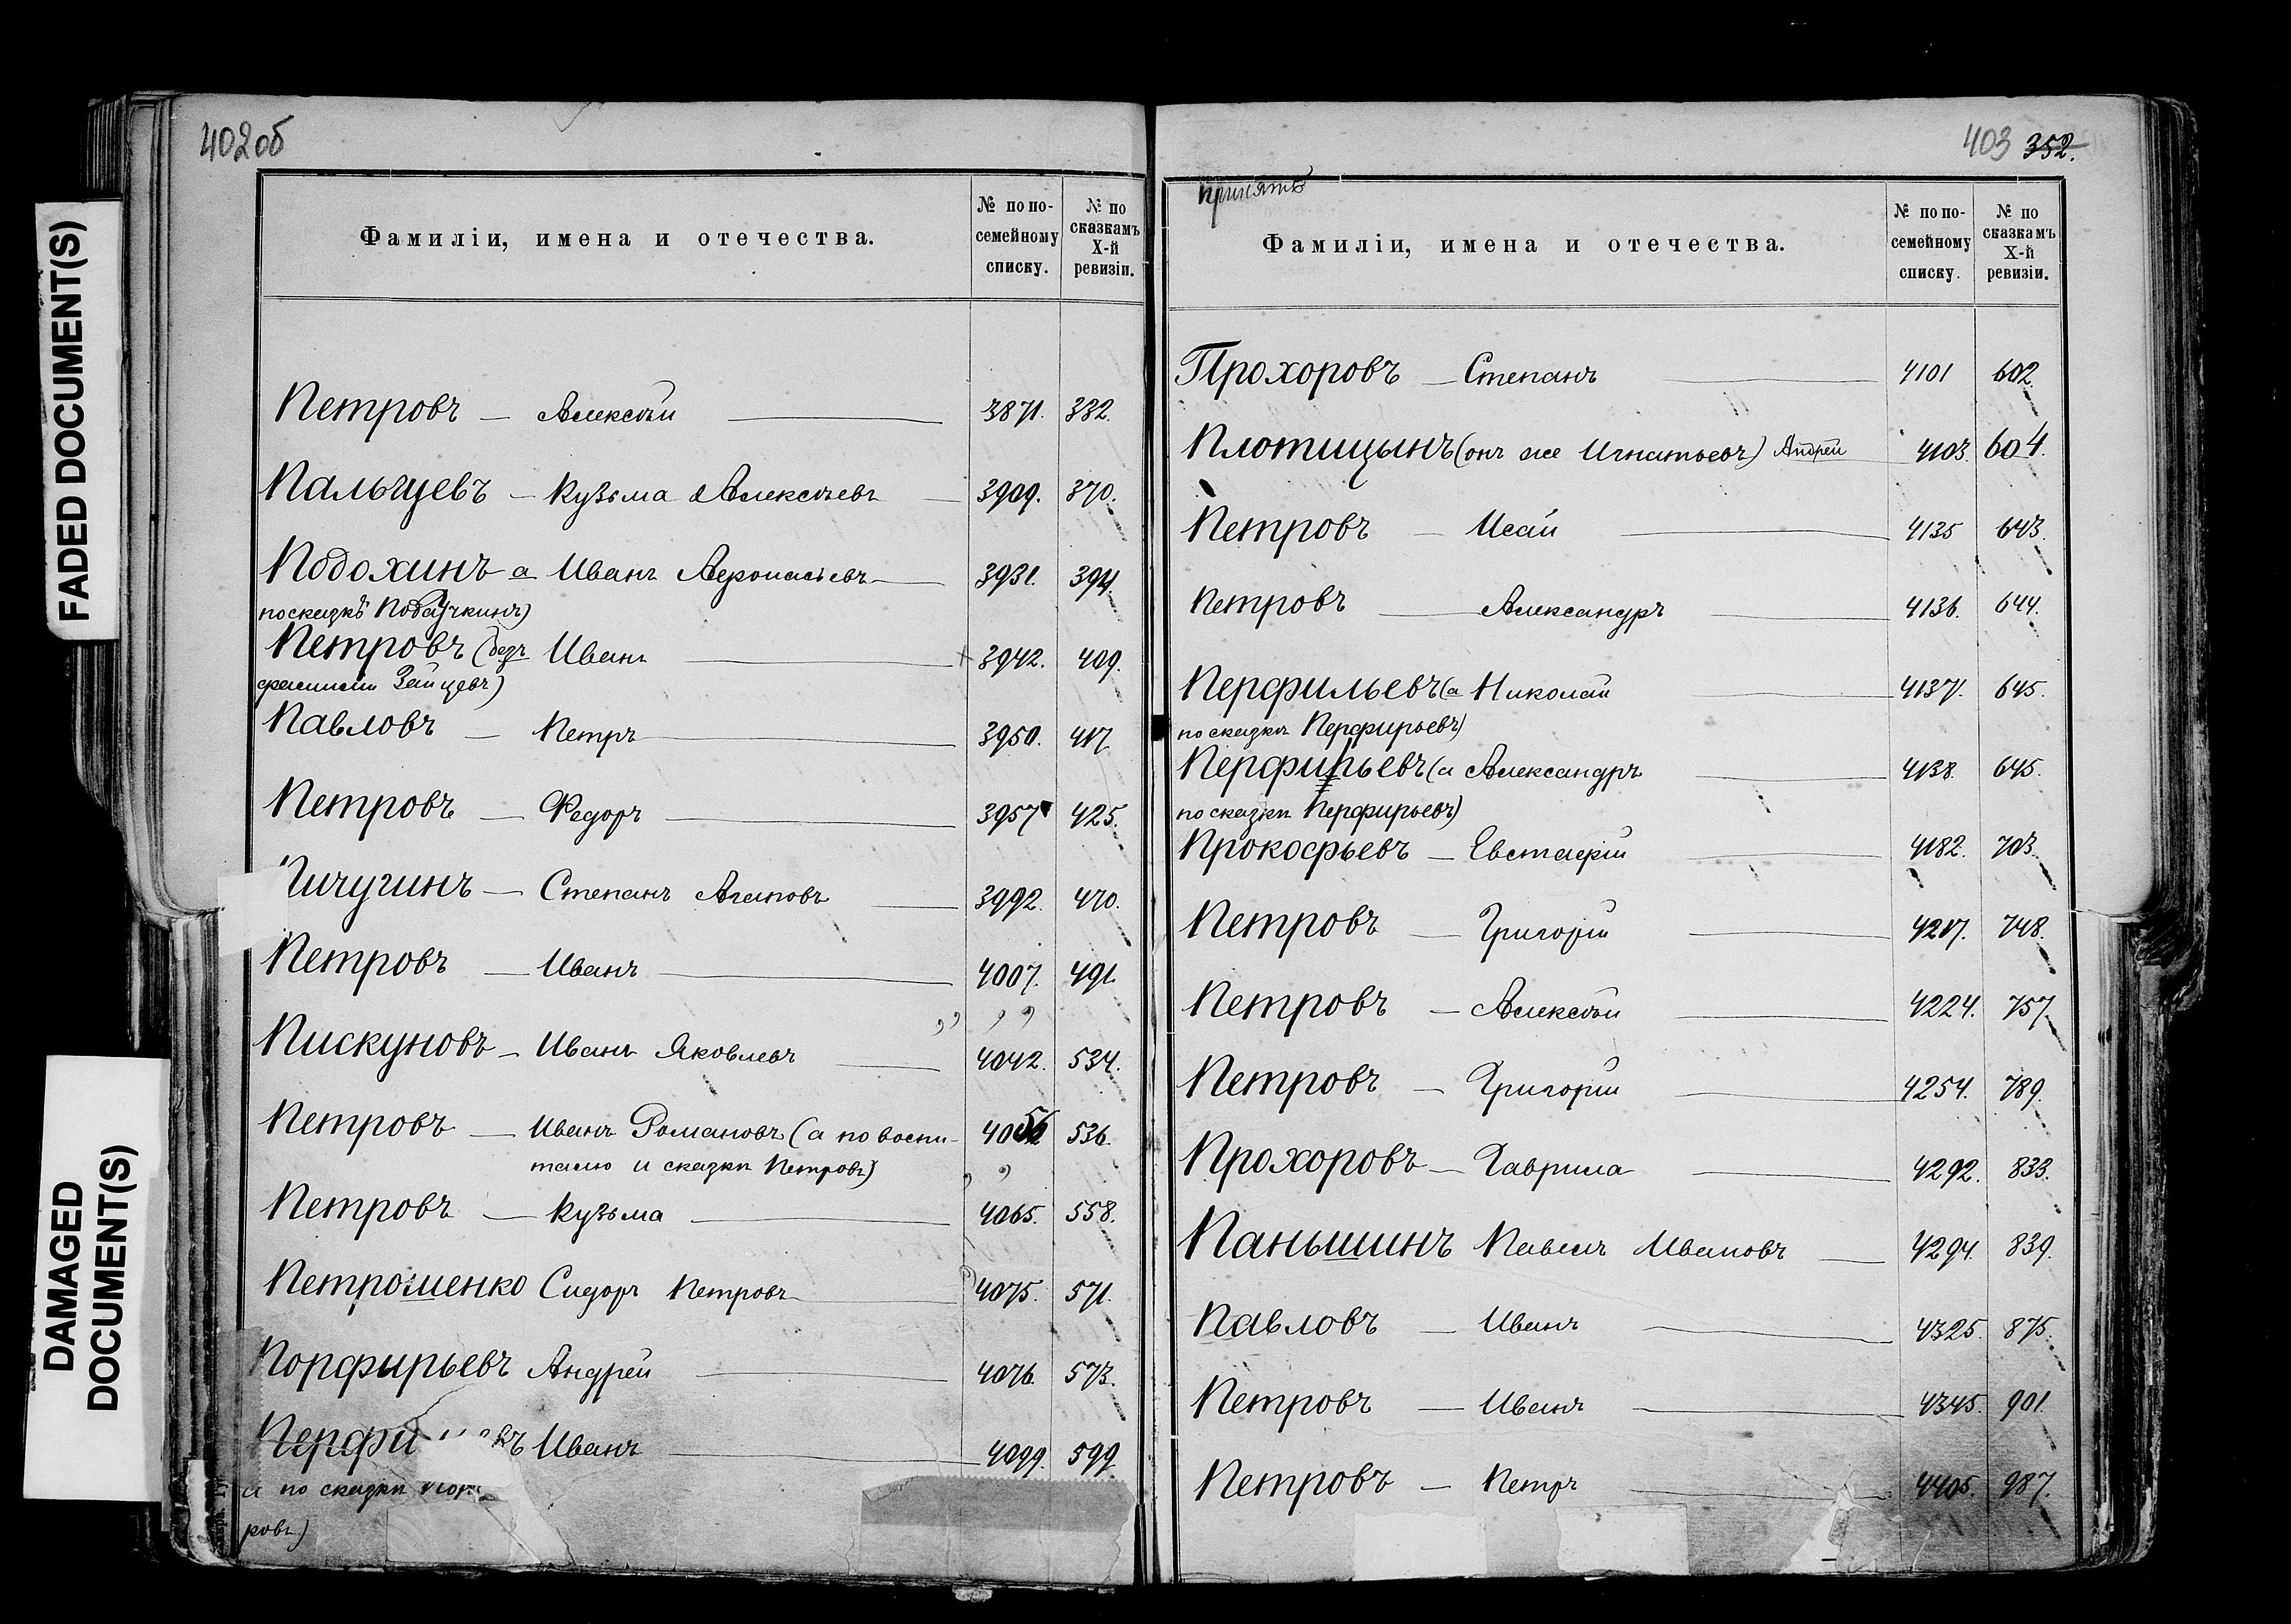 FADED DOCUMENT(S)
DAMAGED
DOCUMENT(S)
402об
Фамиліи, имена и отечества. № по по-семейному списку. № по сказкамъ X-й ревизіи.
Петровъ — Алексѣй 3871. 332.
Пальцевъ — Кузьма Алексѣевъ 3909. 370.
Подохинъ а Иванъ 3931. 394
по сказкѣ
Петровъ (безъ Иванъ 3942. 409.
фамиліи Зайцевъ)
Павловъ — Петръ 3950. 417
Петровъ — Федоръ 3957 425.
Пичугинъ — Степанъ Агаповъ 3992. 470.
Петровъ — Иванъ 4007. 491.
Пискуновъ — Иванъ Яковлевъ 4042. 534.
Петровъ — Иванъ Романовъ (а по воспи- 536.
танію и сказки Петровъ)
Петровъ — Кузьма 4065. 558.
Петрошенко Сидоръ Петровъ 4075. 571.
Порфирьевъ Андрей 4076. 573.
Иванъ 4099. 599
а по сказки
ровъ)
403 352.
принятъ
Фамиліи, имена и отечества. № по по-семейному списку. № по сказкамъ X-й ревизіи.
Прохоровъ — Степанъ 4101 602.
Плотицынъ (онъ же Игнатьевъ) Андрей 4103. 604.
Петровъ — Исай 4135 643.
Петровъ — Александръ 4136. 644.
Перфильевъ (а Николай 4137. 645.
по сказки Перфирьевъ)
Перфирьевъ (а Александръ 4138. 645.
по сказки Перфирьевъ)
Прокофьевъ — Евстафій 4182. 703.
Петровъ — Григорій 4217. 748.
Петровъ — Алексѣй 4224. 757.
Петровъ — Григорій 4254. 789.
Прохоровъ — Гаврила 4292. 833.
Паньшинъ Павелъ Ивановъ 4294. 839.
Павловъ — Иванъ 4325. 875.
Петровъ — Иванъ 4345. 901.
Петровъ — Петръ 4405. 987.